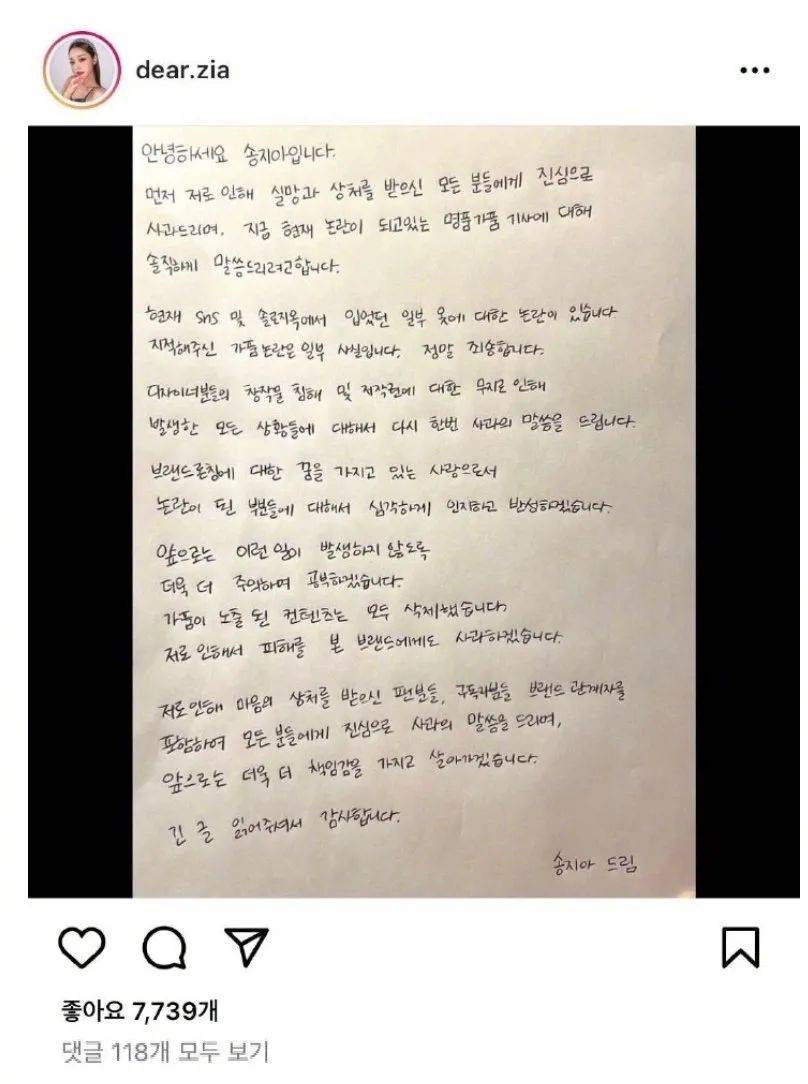 dear.zia
안녕하세요 송지아입니다.
먼저 저로 인해 실망과 상처를 받으신 모든 분들에게 진심으로
사과드리며, 지금 현재 논란이 되고있는 명품가품 기사에 대해
솔직하게 말씀드리려고합니다.
현재 sns 및 솔로지옥에서 입었던 일부 옷에 대한 논란이 있습니다
지적해주신 가품논란은 일부 사실입니다. 정말 죄송합니다.
디자이너분들의 창작물 침해 및 저작권에 대한 무지로 인해
발생한 모든 상황들에 대해서 다시 한번 사과의 말씀을 드립니다.
브랜드론칭에 대한 꿈을 가지고 있는 사람으로서
논란이 된 부분들에 대해서 심각하게 인지하고 반성하겠습니다.
앞으로는 이런 일이 발생하지 않도록
더욱 더 주의하며 공부하겠습니다.
가품이 노출 된 컨텐츠는 모두 삭제했습니다.
저로 인해서 피해를 본 브랜드에게도 사과하겠습니다.
저로인해 마음의 상처를 받으신 팬분들, 구독자분들 브랜드 관계자를
포함하여 모든 분들에게 진심으로 사과의 말씀을 드리며,
앞으로는 더욱 더 책임감을 가지고 살아가겠습니다.
긴 글 읽어주셔서 감사합니다.
송지아 드림
좋아요 7,739개
댓글 118개 모두 보기